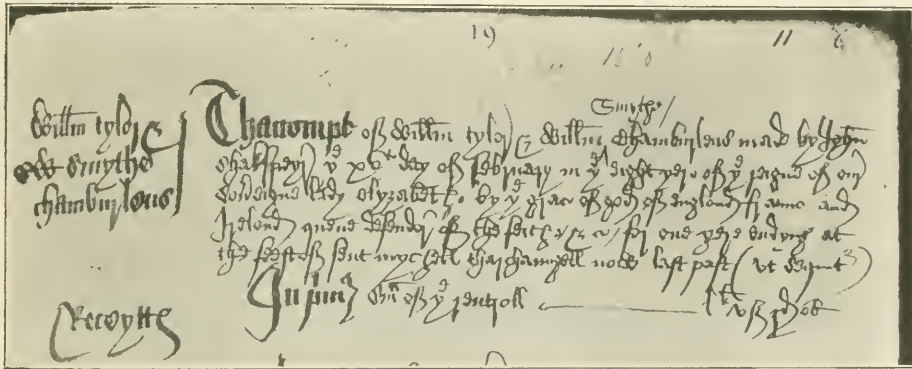 19 11
Willm tylor
& W Smythe
chamburlens
Smythe
Thacompt off Willm tylor & Willm chamburlens made by John
Shakspeyr ye xvth day off february in ye eight yere of ye reigne of our
Sovereigne lady Elyzabeth by ye grace of god of england fraunce and
Ireland quene defendr of the feith &c for one yere endyng at
the feest off sent mychell tharchangell now last past (ut sequit)
In pmis Sm off ye rentroll
Receytts